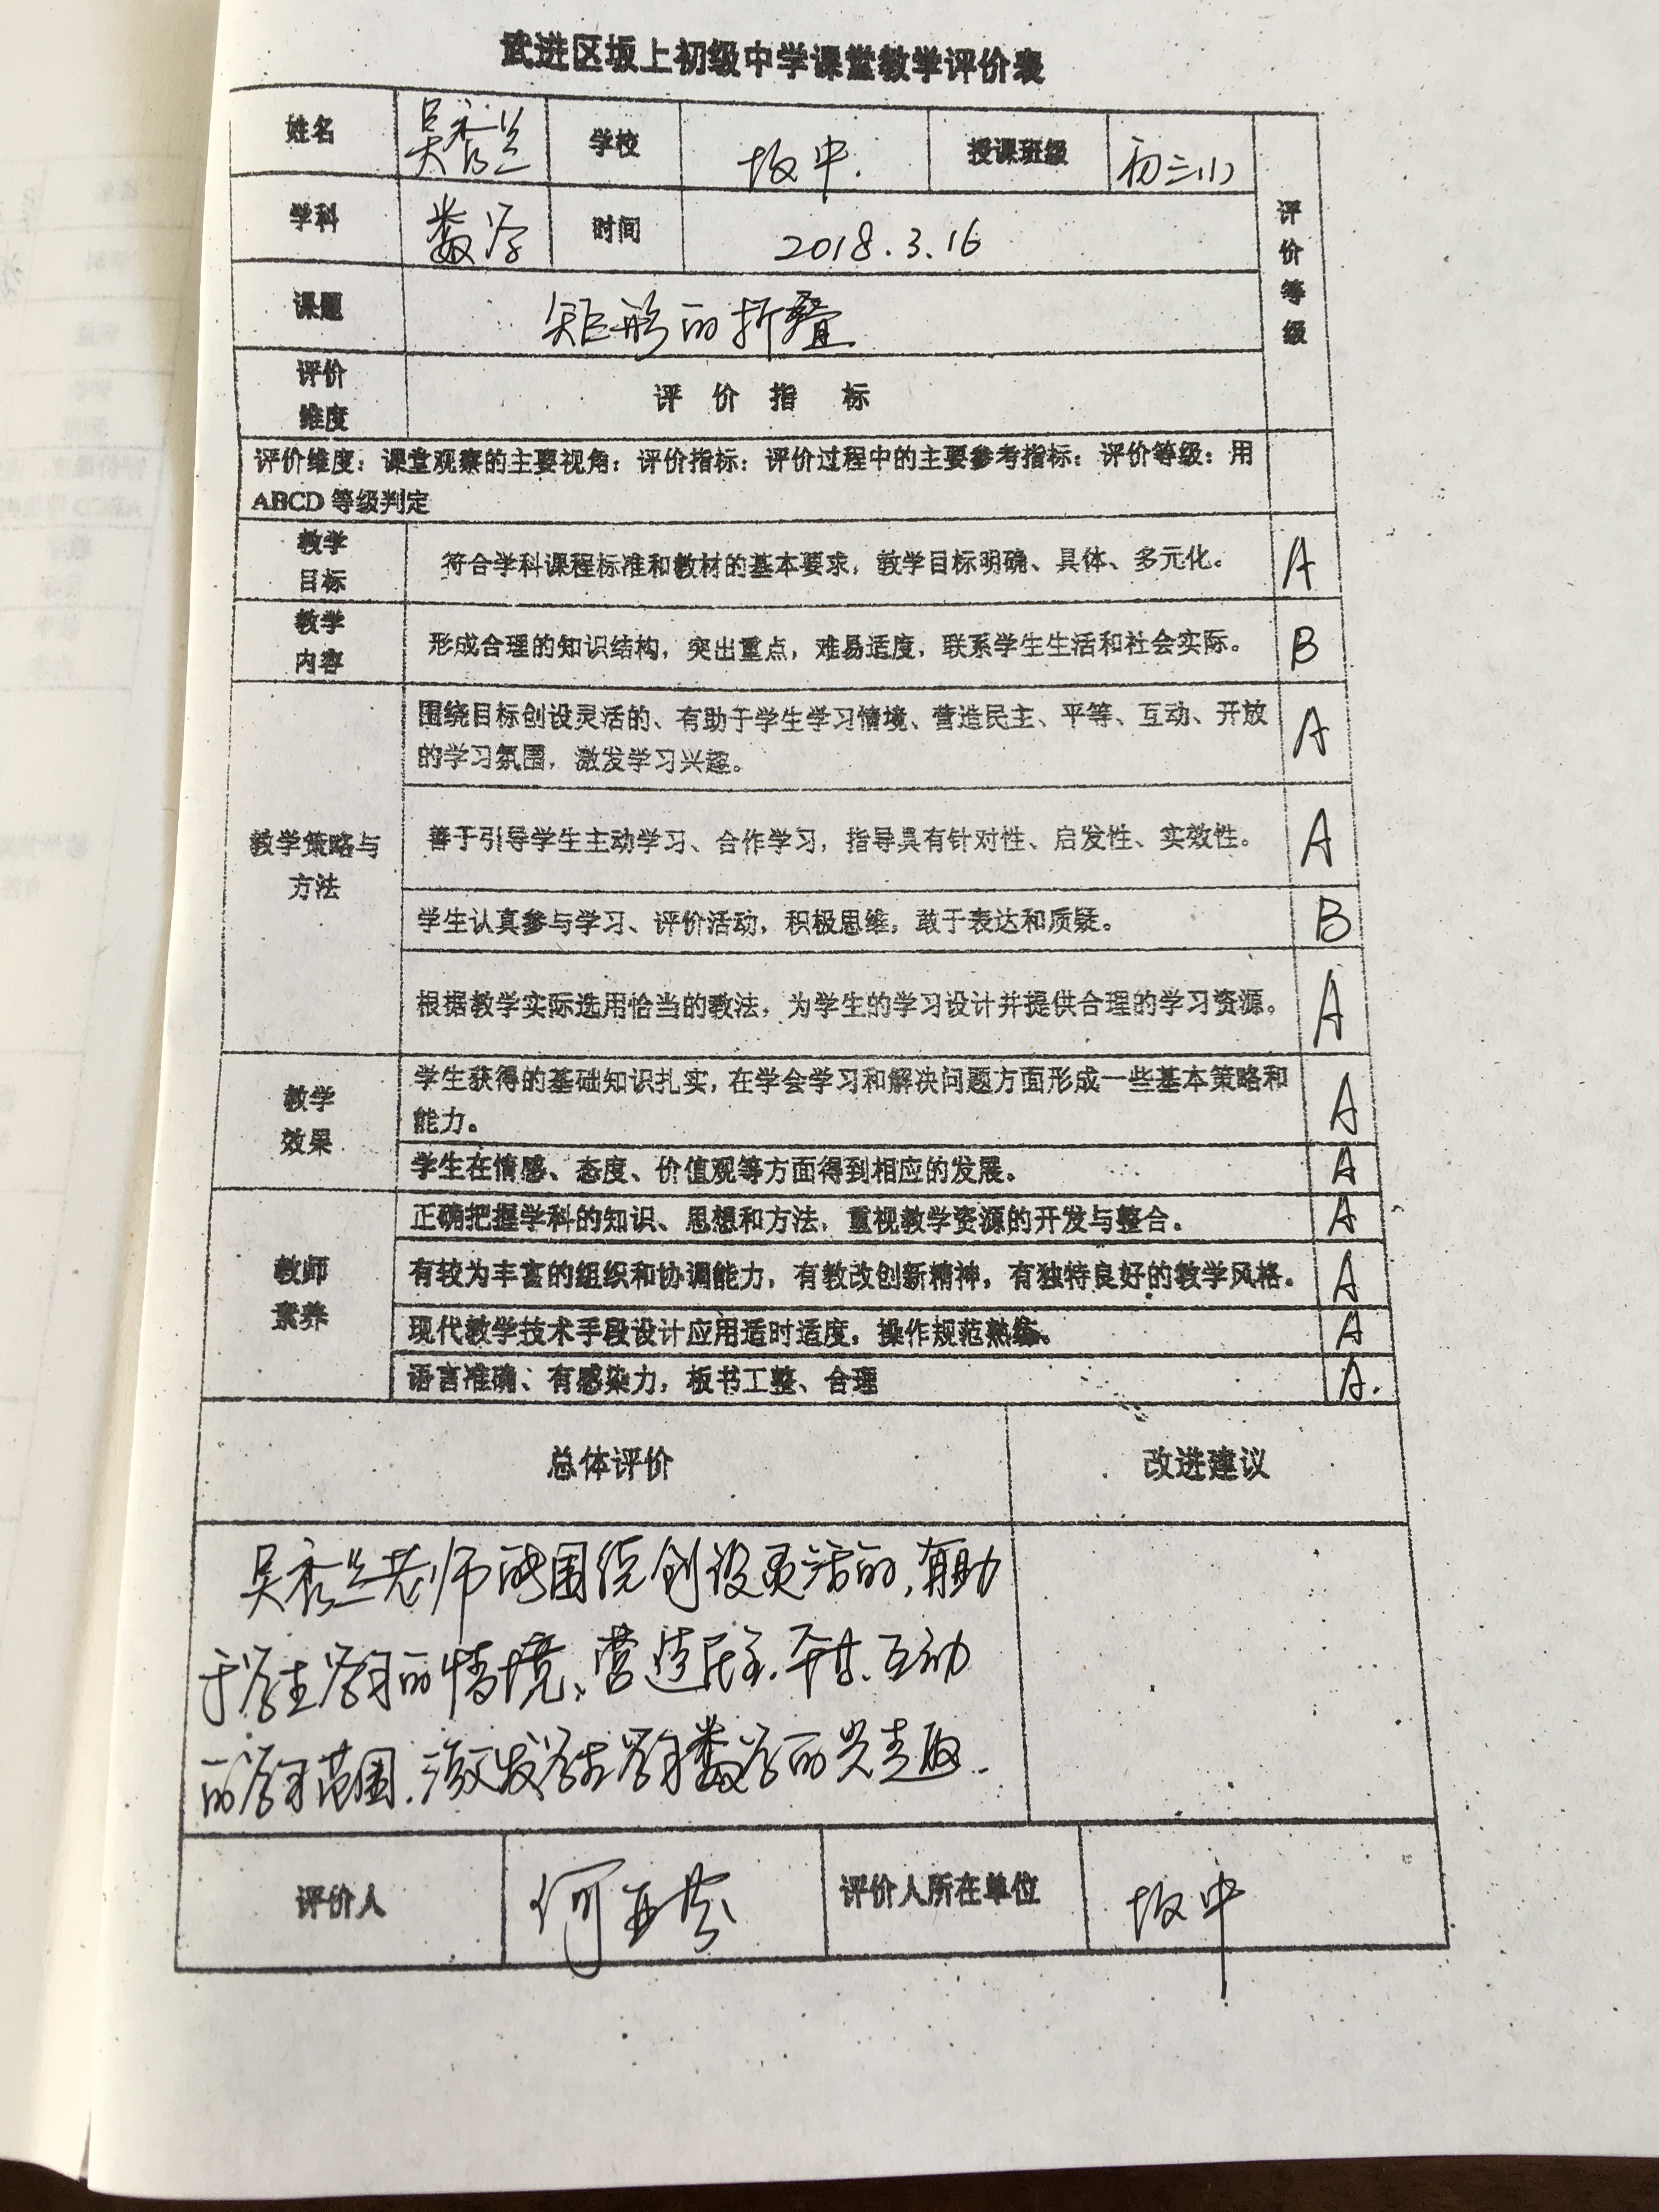 武进区坂上初级中学课堂教学评价表
姓名 吴秀兰 学校 坂中. 授课班级 初三(1)
学科 数学 时间 2018.3.16
评价等级
课题 矩形的折叠
评价
维度
评 价 指 标
评价维度：课堂观察的主要视角；评价指标：评价过程中的主要参考指标；评价等级：用
ABCD 等级判定
教学
目标
符合学科课程标准和教材的基本要求，教学目标明确、具体、多元化。 A
教学
内容
形成合理的知识结构，突出重点，难易适度，联系学生生活和社会实际。 B
教学策略与
方法
围绕目标创设灵活的、有助于学生学习情境、营造民主、平等、互动、开放
的学习氛围，激发学习兴趣。 A
善于引导学生主动学习、合作学习，指导具有针对性、启发性、实效性。 A
学生认真参与学习、评价活动，积极思维，敢于表达和质疑。 B
根据教学实际选用恰当的教法，为学生的学习设计并提供合理的学习资源。 A
教学
效果
学生获得的基础知识扎实，在学会学习和解决问题方面形成一些基本策略和
能力。 A
学生在情感、态度、价值观等方面得到相应的发展。 A
教师
素养
正确把握学科的知识、思想和方法，重视教学资源的开发与整合。 A
有较为丰富的组织和协调能力，有教改创新精神，有独特良好的教学风格。 A
现代教学技术手段设计应用适时适度，操作规范熟练。 A
语言准确、有感染力，板书工整、合理 A.
总体评价 改进建议
吴秀兰老师能围绕创设灵活的,有助
于学生学习的情境、营造民主.平等.互动
的学习范围.激发学生学习数学的兴趣.
评价人 何亚芬 评价人所在单位 坂中